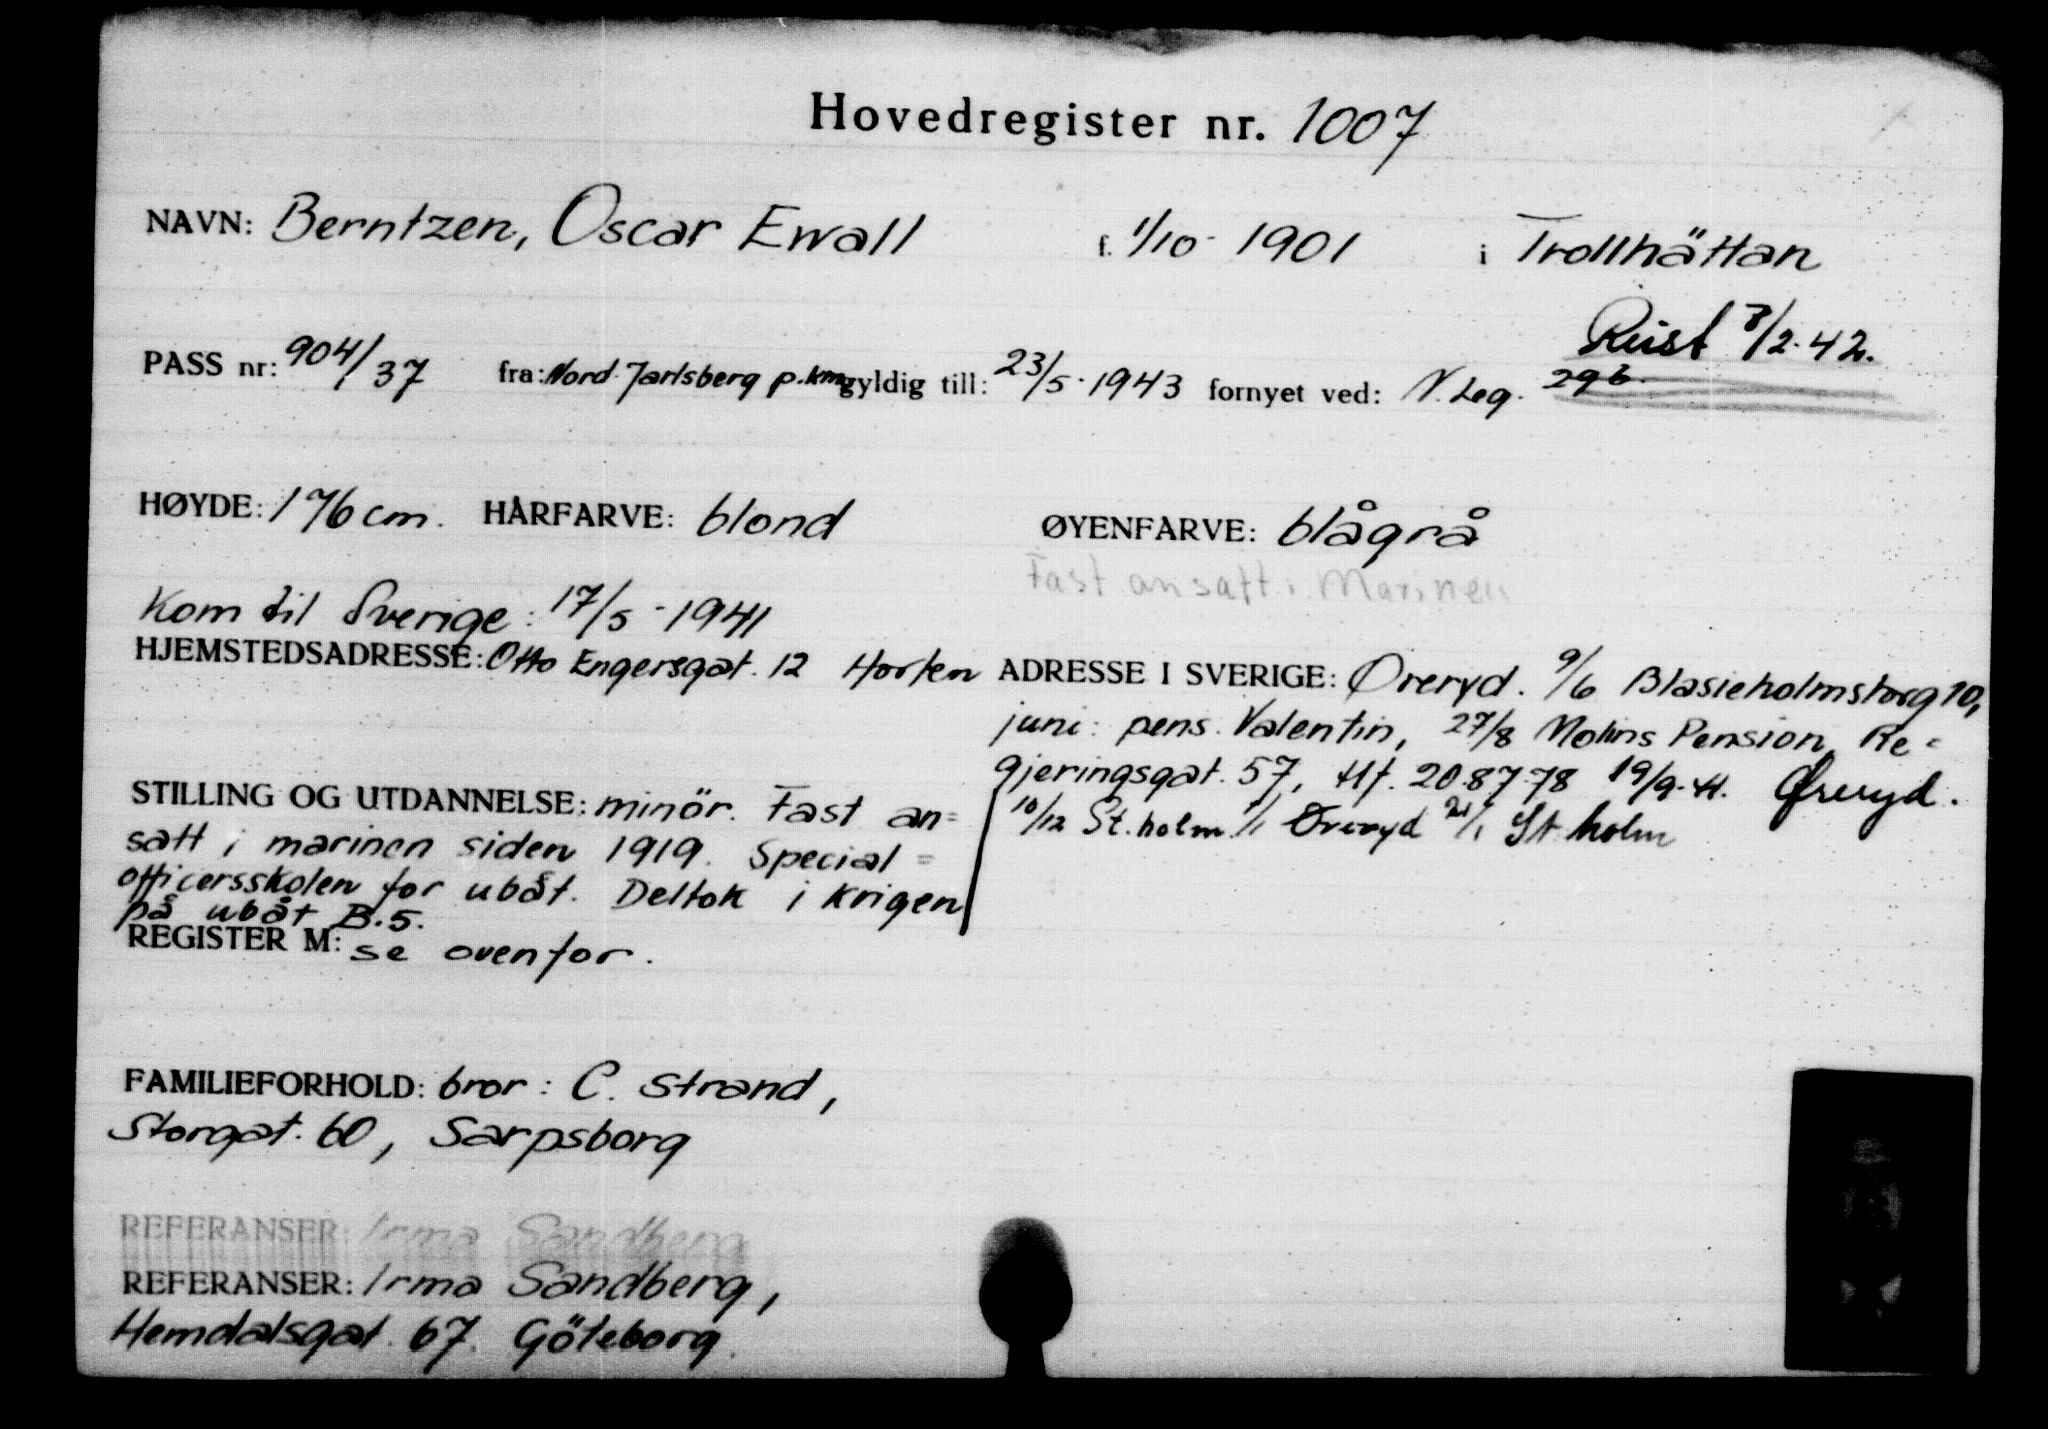 Hovedregister nr. 1007
NAVN: Berntzen, Oscar Ewall f. 1/10-1901 i Trollhättan
Reist 3/2-42.
PASS nr: 904/37 fra: Nord. Jarlsberg p.km gyldig till: 23/5-1943 fornyet ved: N. Leg. 296.
HØYDE: 176 cm. HÅRFARVE: blond ØYENFARVE: blågrå
Fast ansatt i Marinen
Kom til Sverige: 17/5-1941
HJEMSTEDSADRESSE: Otto Engersgat. 12 Horten
ADRESSE I SVERIGE: Øreryd. 9/6 Blasieholmstorg 10,
juni: pens. Valentin, 27/8 Molins Pension, Re-
gjeringsgat. 57, tlf. 20 87 78 19/9-41. Øreryd.
10/12 St.holm. 1/1 Øreryd 21/1 St.holm
STILLING OG UTDANNELSE: minör. Fast an=
satt i marinen siden 1919. Special=
officersskolen for ubåt. Deltok i krigen
på ubåt B.5.
REGISTER M: se ovenfor.
FAMILIEFORHOLD: bror: C. Strand,
Storgat. 60, Sarpsborg
REFERANSER: Irma Sandberg
REFERANSER: Irma Sandberg,
Hemdalsgat. 67. Göteborg.